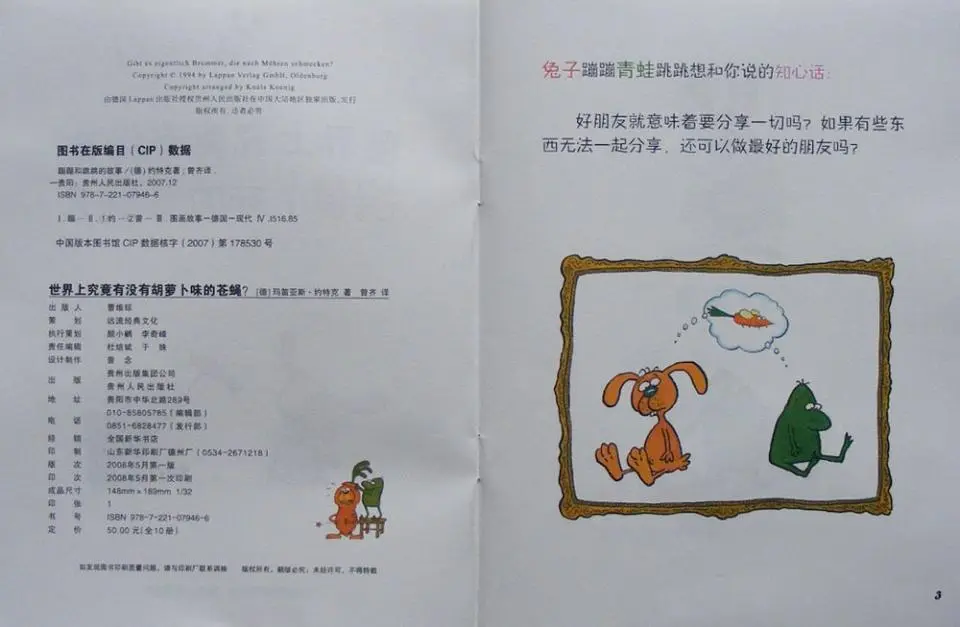 Gibt es eigentlich Brummer, die nach Möhren schmecken?
Copyright © 1994 by Lappan Verlag GmbH, Oldenburg
Copyright arranged by Koala Koenig
由德国Lappan出版社授权贵州人民出版社在中国大陆地区独家出版、发行
版权所有，违者必究
图书在版编目（CIP）数据
蹦蹦和跳跳的故事/（德）约特克著；曾齐译.
—贵阳：贵州人民出版社，2007.12
ISBN 978-7-221-07946-6
Ⅰ.蹦… Ⅱ.①约…②曾… Ⅲ.图画故事—德国—现代 Ⅳ.I516.85
中国版本图书馆CIP数据核字（2007）第178530号
世界上究竟有没有胡萝卜味的苍蝇？ [德]玛笛亚斯·约特克 著 曾齐 译
出版人 曹维琼
策划 远流经典文化
执行策划 颜小鹂 李奇峰
责任编辑 杜培斌 于姝
设计制作 曾念
出版 贵州出版集团公司
贵州人民出版社
地址 贵阳市中华北路289号
电话 010-85805785（编辑部）
0851-6828477（发行部）
经销 全国新华书店
印制 山东新华印刷厂德州厂（0534-2671218）
版次 2008年5月第一版
印次 2008年5月第一次印刷
成品尺寸 148mm×189mm 1/32
印张 1
书号 ISBN 978-7-221-07946-6
定价 50.00元（全10册）
如发现图书印刷质量问题，请与印刷厂联系调换 版权所有，翻版必究；未经许可，不得转载
兔子蹦蹦青蛙跳跳想和你说的知心话：
好朋友就意味着要分享一切吗？如果有些东
西无法一起分享，还可以做最好的朋友吗？
3